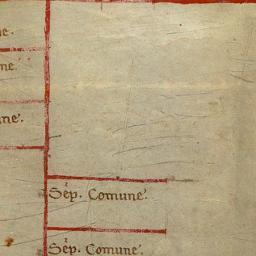 ne.
ne.
ne.
Sep. Comune.
Sep. Comune.